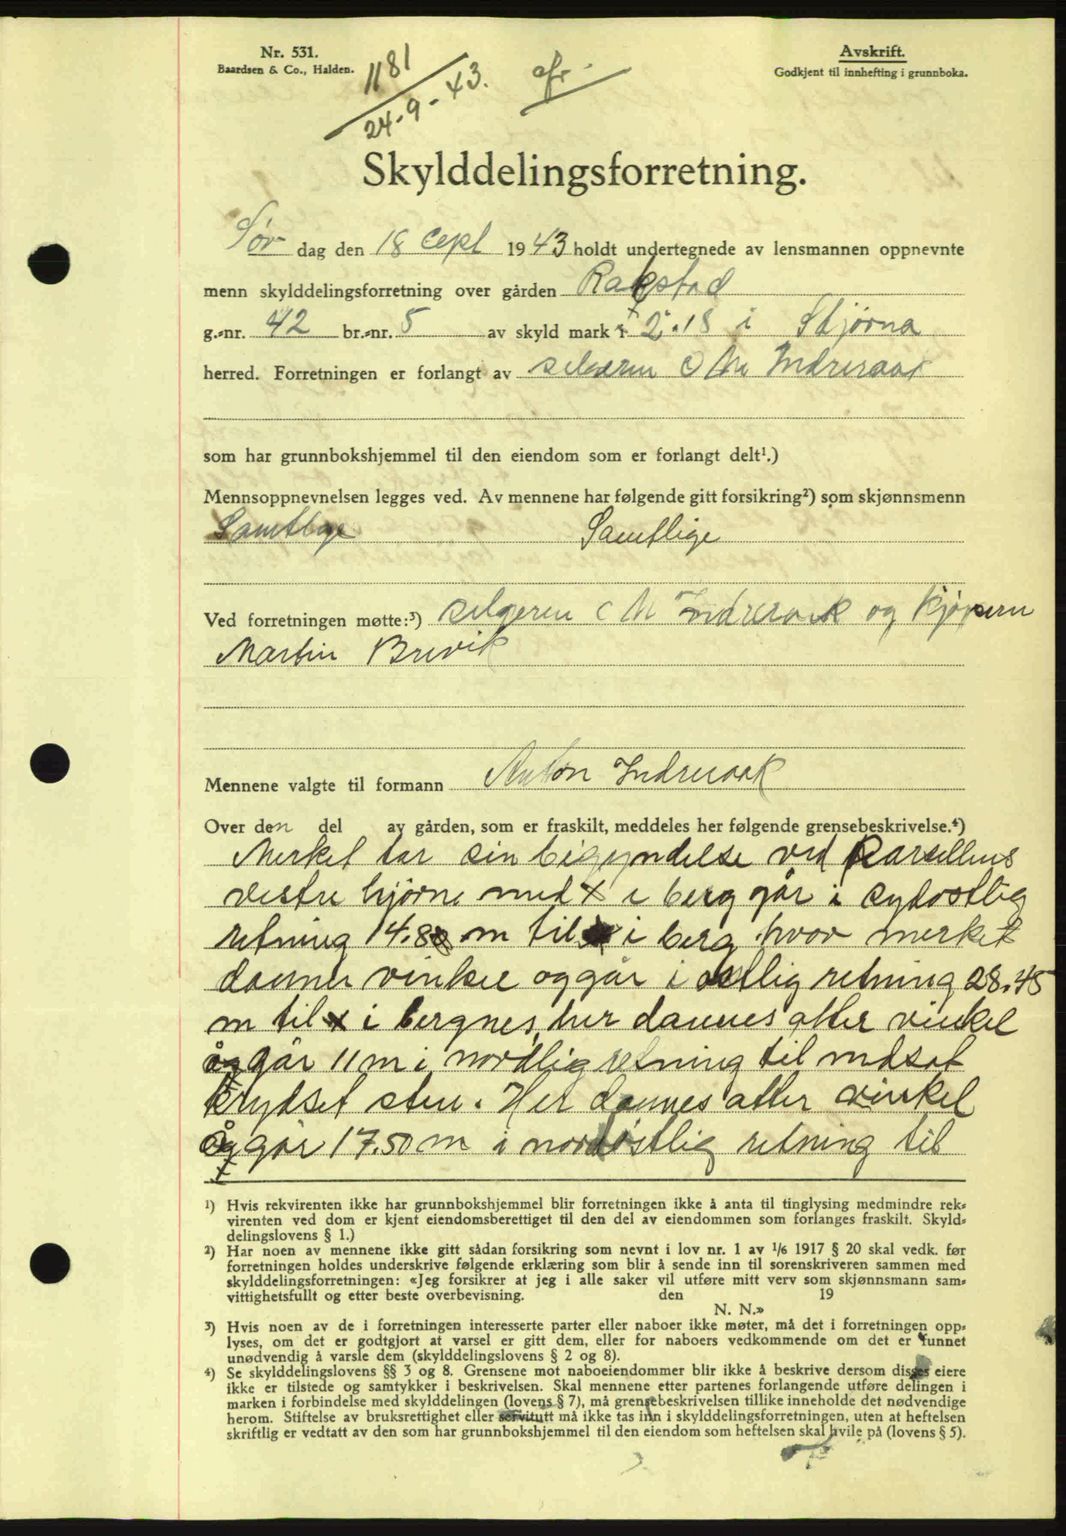 Nr. 531.
Baardsen & Co., Halden.
1181
24-9-43.
Avskrift.
Godkjent til innhefting i grunnboka.
Skylddelingsforretning.
Lør dag den 18 Sept 1943 holdt undertegnede av lensmannen oppnevnte
menn skylddelingsforretning over gården Rakstad
g.-nr. 42 br.-nr. 5 av skyld mark 2.18 i Stjørna
herred. Forretningen er forlangt av selgeren M Indrevak
som har grunnbokshjemmel til den eiendom som er forlangt delt¹.)
Mennsoppnevnelsen legges ved. Av mennene har følgende gitt forsikring²) som skjønnsmenn
Samtlige Samtlige
Ved forretningen møtte:³) selgeren M Indrevik og kjøpern
Martin Brevik
Mennene valgte til formann Anton Indrevak
Over den del av gården, som er fraskilt, meddeles her følgende grensebeskrivelse.⁴)
Merket tar sin begyndelse ved Parsellens
vestre hjørne med x i berg går i sydostlig
retning 14.80 m til x i berg hvor merket
danner vinkel og går i østlig retning 28.45
m til x i bergnes, her dannes atter vinkel
og går 11 m i nordlig retning til nedsat
krydset sten. Her dannes atter vinkel
og går 17.50 m i nordøstlig retning til
¹) Hvis rekvirenten ikke har grunnbokshjemmel blir forretningen ikke å anta til tinglysing medmindre rek-
virenten ved dom er kjent eiendomsberettiget til den del av eiendommen som forlanges fraskilt. Skyld-
delingslovens § 1.)
²) Har noen av mennene ikke gitt sådan forsikring som nevnt i lov nr. 1 av 1/6 1917 § 20 skal vedk. før
forretningen holdes underskrive følgende erklæring som blir å sende inn til sorenskriveren sammen med
skylddelingsforretningen: «Jeg forsikrer at jeg i alle saker vil utføre mitt verv som skjønnsmann sam-
vittighetsfullt og etter beste overbevisning. den 19
N. N.»
³) Hvis noen av de i forretningen interesserte parter eller naboer ikke møter, må det i forretningen opp-
lyses, om det er godtgjort at varsel er gitt dem, eller for naboers vedkommende om det er funnet
unødvendig å varsle dem (skylddelingslovens § 2 og 8).
⁴) Se skylddelingslovens §§ 3 og 8. Grensene mot naboeiendommer blir ikke å beskrive dersom disses eiere
ikke er tilstede og samtykker i beskrivelsen. Skal mennene etter partenes forlangende utføre delingen i
marken i forbindelse med skylddelingen (lovens § 7), må grensebeskrivelsen tillike inneholde det nødvendige
herom. Stiftelse av bruksrettighet eller servitutt må ikke tas inn i skylddelingsforretningen, uten at heftelsen
skriftlig er vedtatt av den som har grunnbokshjemmel til den eiendom som heftelsen skal hvile på (lovens § 5).